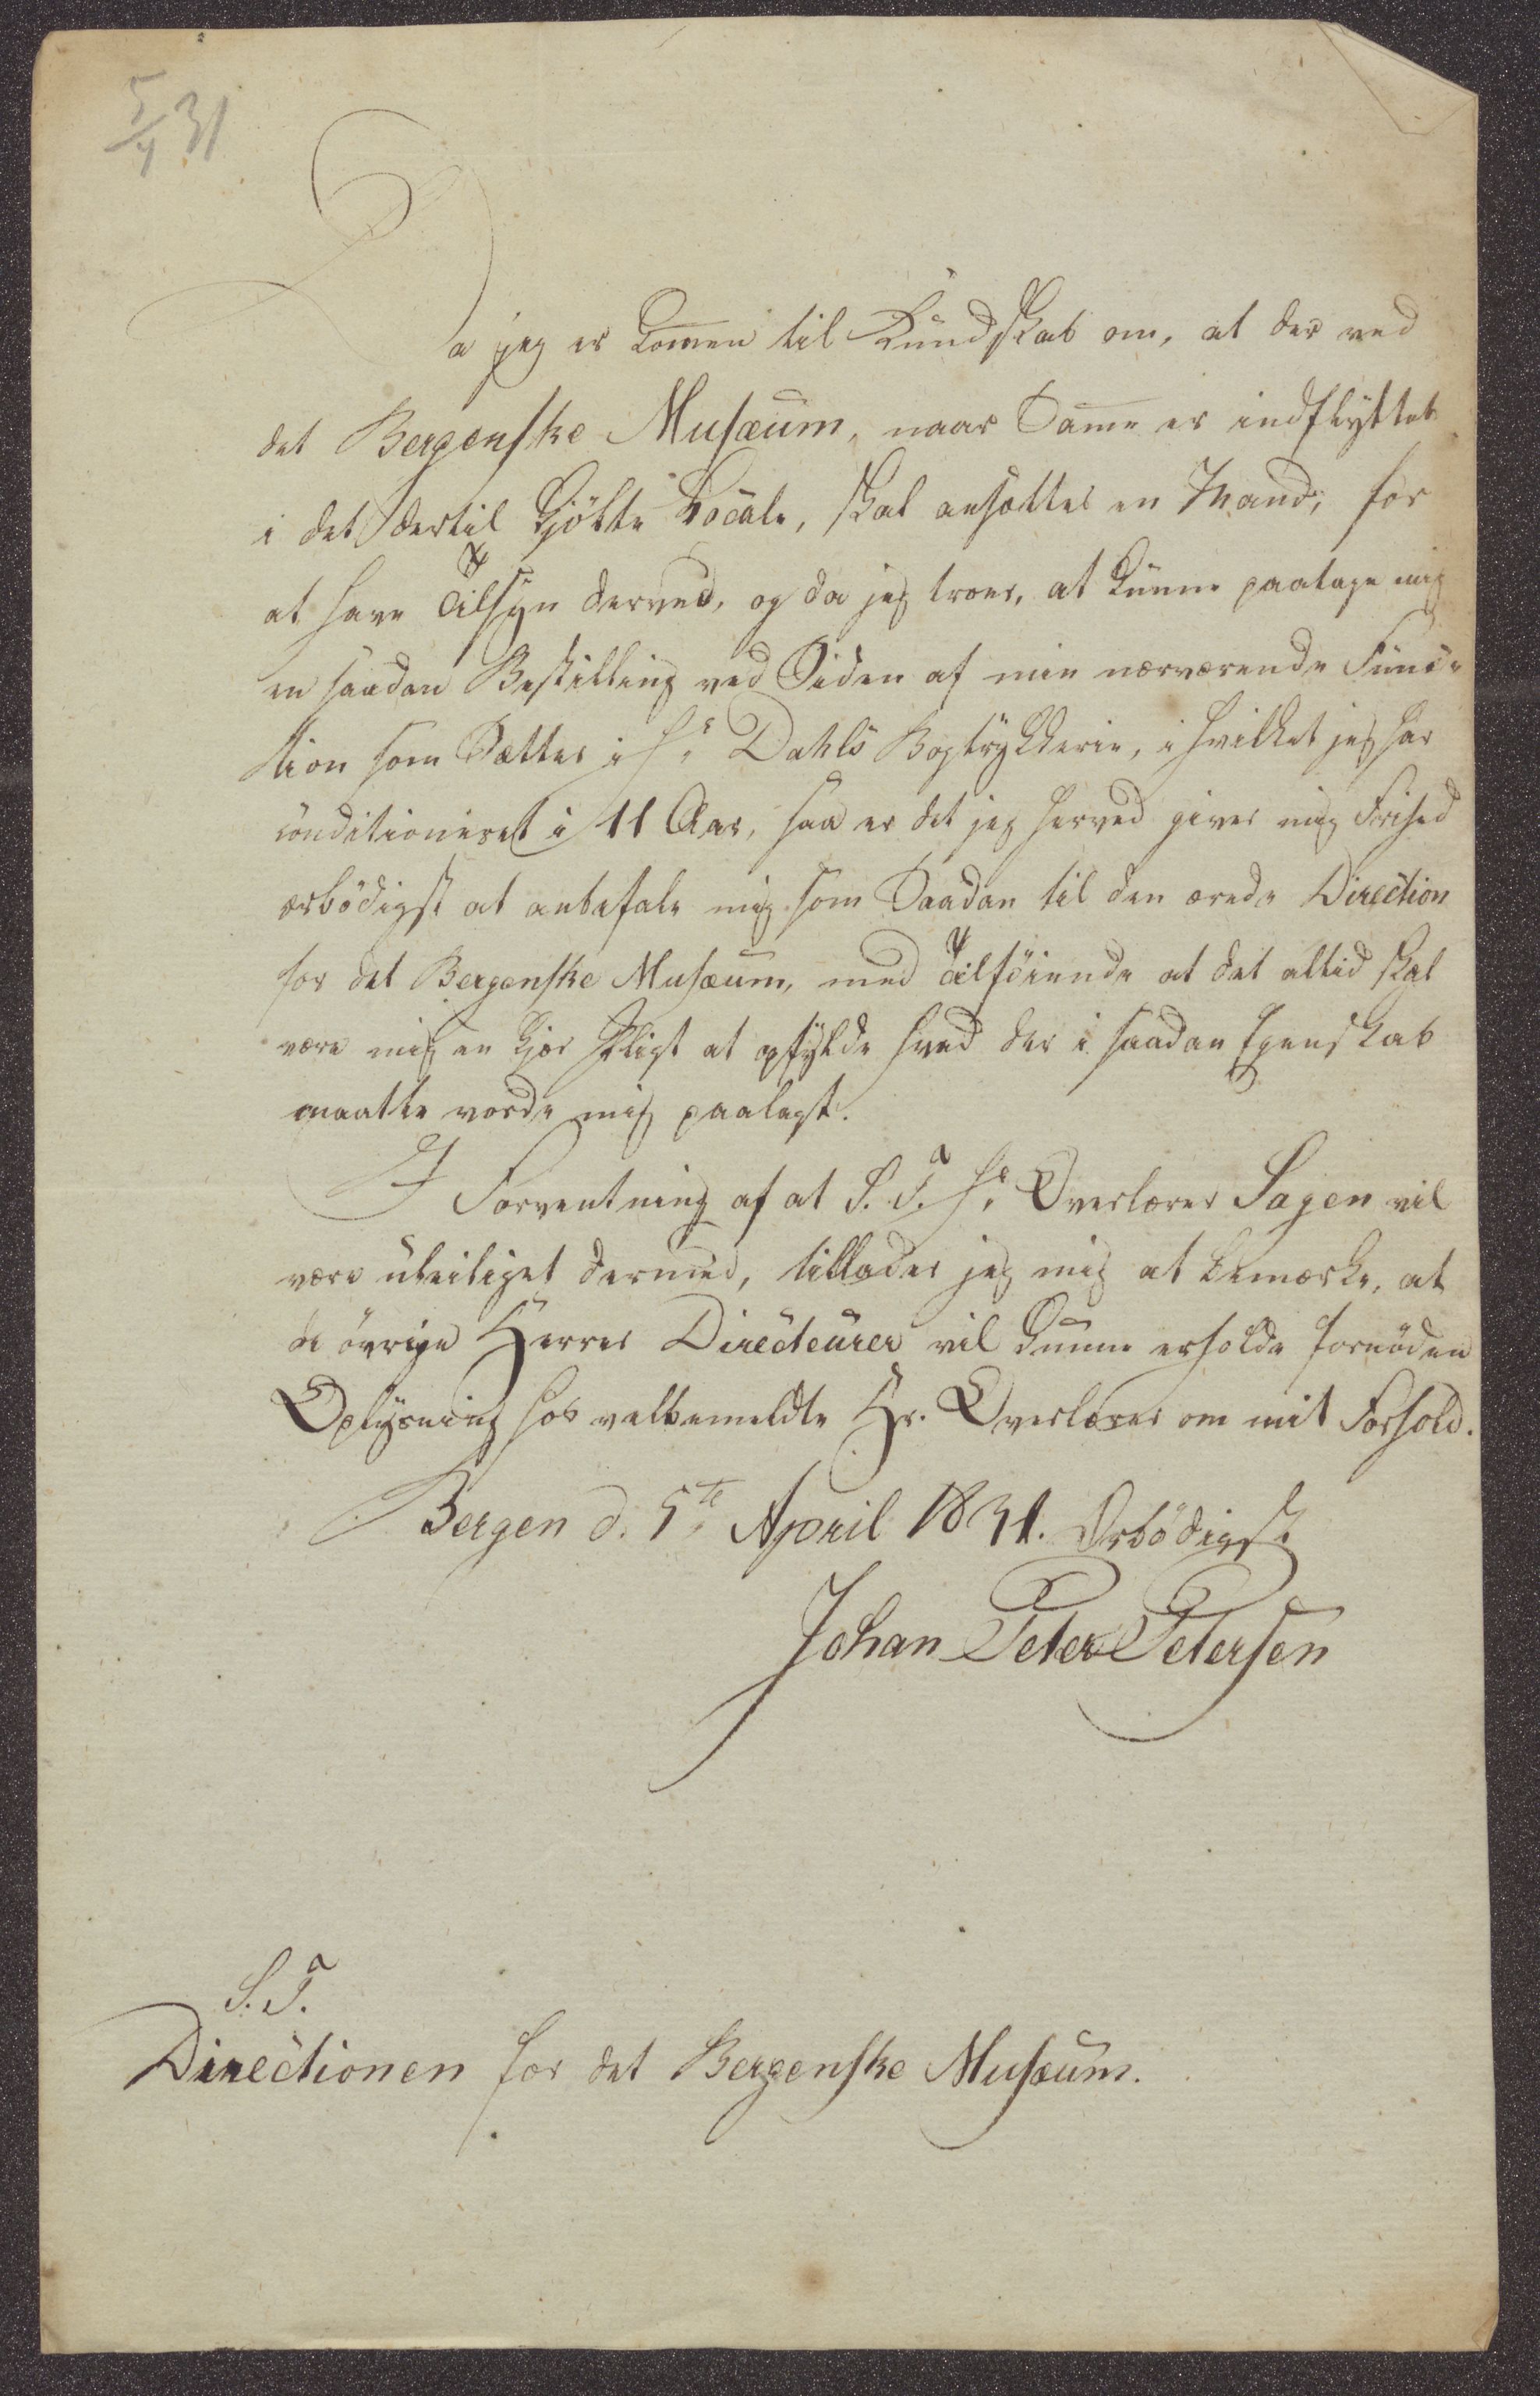 5/4 31
Da jeg er kom̅en til Kundskab om, at der ved
det Bergenske Musæum, naar Sam̅e er indflyttet
i det dertil kjöbte Locale, skal ansættes en Mand, for
at have Tilsyn derved, og da jeg troer, at kunne paatage mig
en saadan Bestilling ved Siden af min nærværende Func-
tion som Sætter i Hr. Dahls Bogtrykkerie, i hvilket jeg har
conditioneret i 11 Aar, saa er det jeg herved giver mig Frihed
ærbödigst at anbefale mig som Saadan til den ærede Direction
for det Bergenske Musæum, med Tilföiende at det altid skal
være mig en kjær Pligt at opfylde hvad der i saadan Egenskab
maatte vorde mig paalagt.
I Forventning af at S. T. Hr. Overlærer Sagen vil
være uleiliget dermed, tillader jeg mig at bemærke, at
de övrige Herrer Directeurer vil kunne erholde fornöden
Oplysning hos velbemeldte Hr. Overlærer om mit Forhold.
Bergen d. 5te April 1831. Ærbödigst
Johan Peter Petersen
S. T.
Directionen for det Bergenske Musæum.